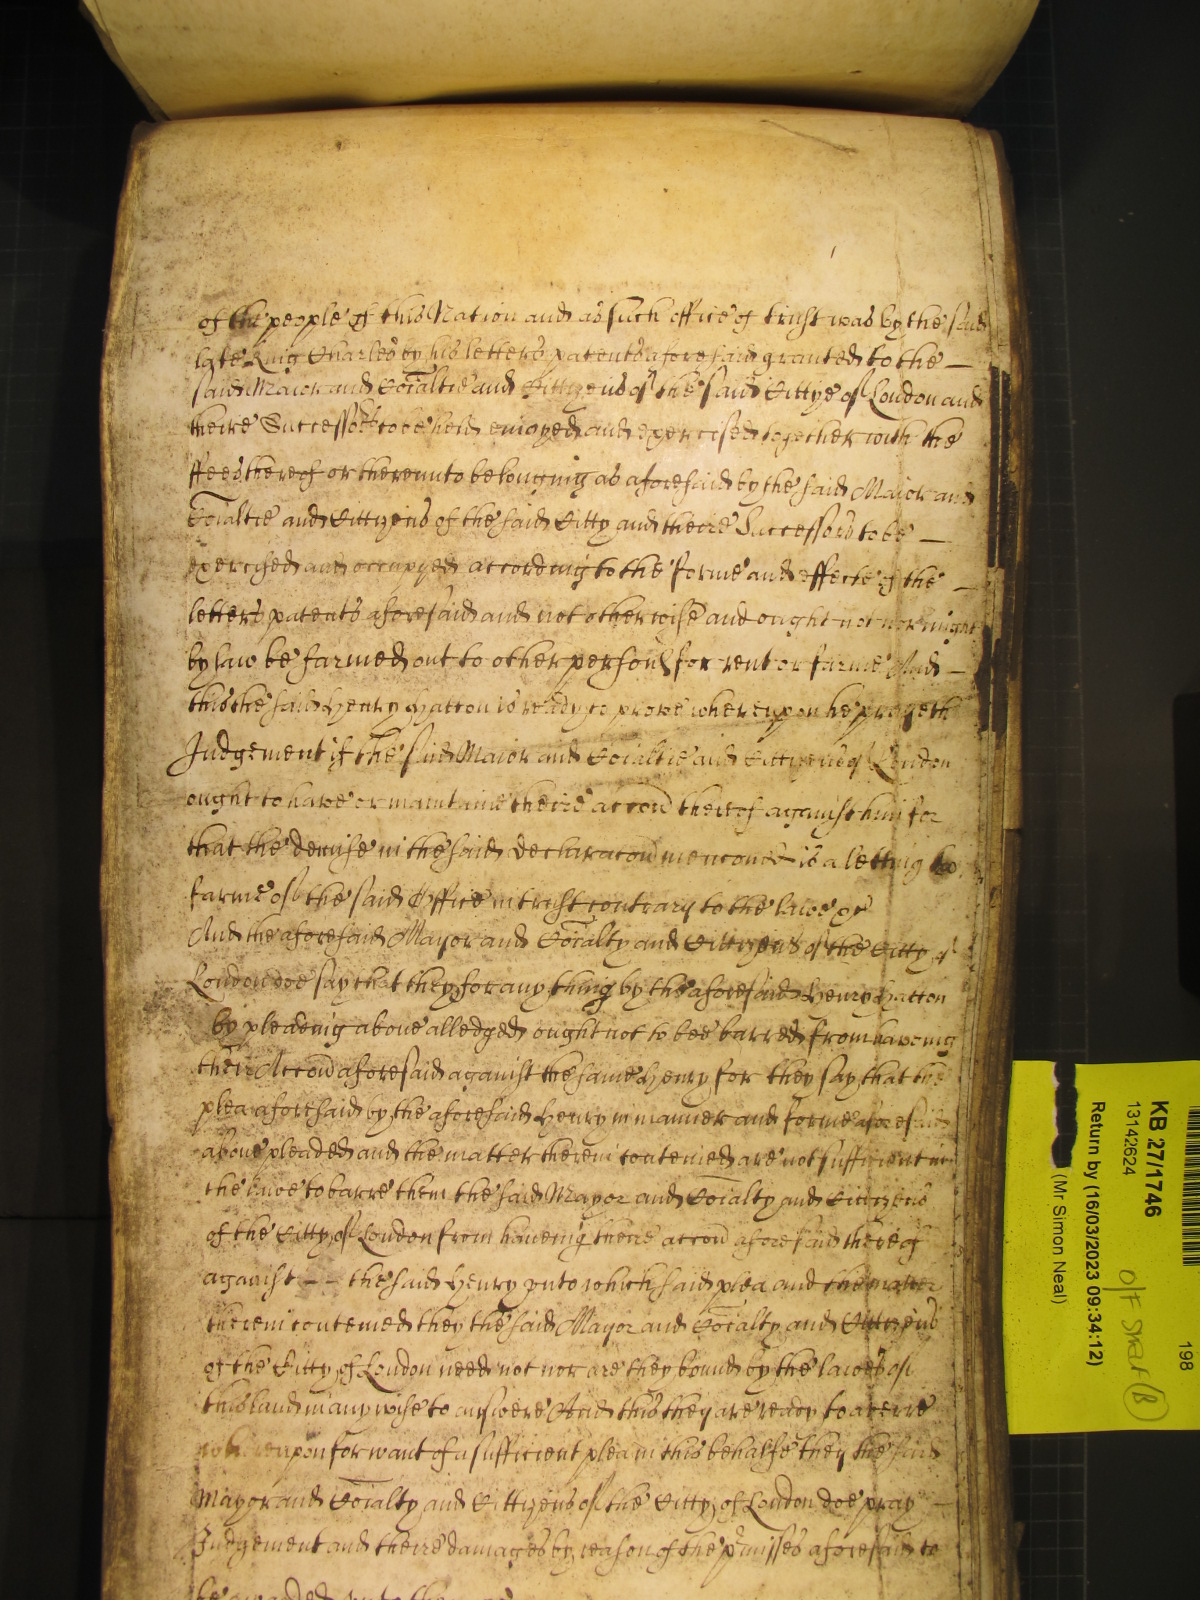 of the people of this Nation and as such office of trust was by the said
late King Charles by his letters patents aforesaid granted to the —
said Maior and Coialtie and Cittizens of the said Cittye of London and
theire Successors to be held enioyed and exercised together with the
ffees thereof or thereunto belonging as aforesaid by the said Maior and
Coialtie and Cittizens of the said Citty and theire Successors to be —
exercised and occupyed according to the forme and effecte of the —
letters patents aforesaid and not otherwise and ought not nor might
by law be farmed out to other persons for rent or farme And —
this the said Henry Hatton is ready to prove whereupon he prayeth
Judgement if the said Maior and Coialtie and Cittizens of London
ought to have or maintaine theire accon thereof against him for
that the demise in the said declaracon menconed is a letting to
farme of the said Office in trust contrary to the lawe &c
And the aforesaid Mayor and Coialty and Cittizens of the Citty of
London doe say that they for any thing by the aforesaid Henry Hatton
by pleading above alledged ought not to bee barred from haveing
their Accon aforesaid against the same Henry for they say that the
plea aforesaid by the aforesaid Henry in manner and forme aforesaid
above pleaded and the matter therein conteined are not sufficient in
the lawe to barre them the said Mayor and Coialty and Cittizens
of the Citty of London from haveing theire accon aforesaid thereof
against — — the said Henry unto which said plea and the matter
therein conteined they the said Mayor and Coialty and Cittizens
of the Citty of London need not nor are they bound by the lawes of
this land in any wise to answere And this they are ready to averre
whereupon for want of a sufficient plea in this behalfe they the said
Mayor and Coialty and Cittizens of the Citty of London doe pray —
Judgement and theire damages by reason of the pmisses aforesaid to
be awarded unto them &c
KB 27/1746
13142624
Return by (16/03/2023 09:34:12)
(Mr Simon Neal)
198
O/F
(B)